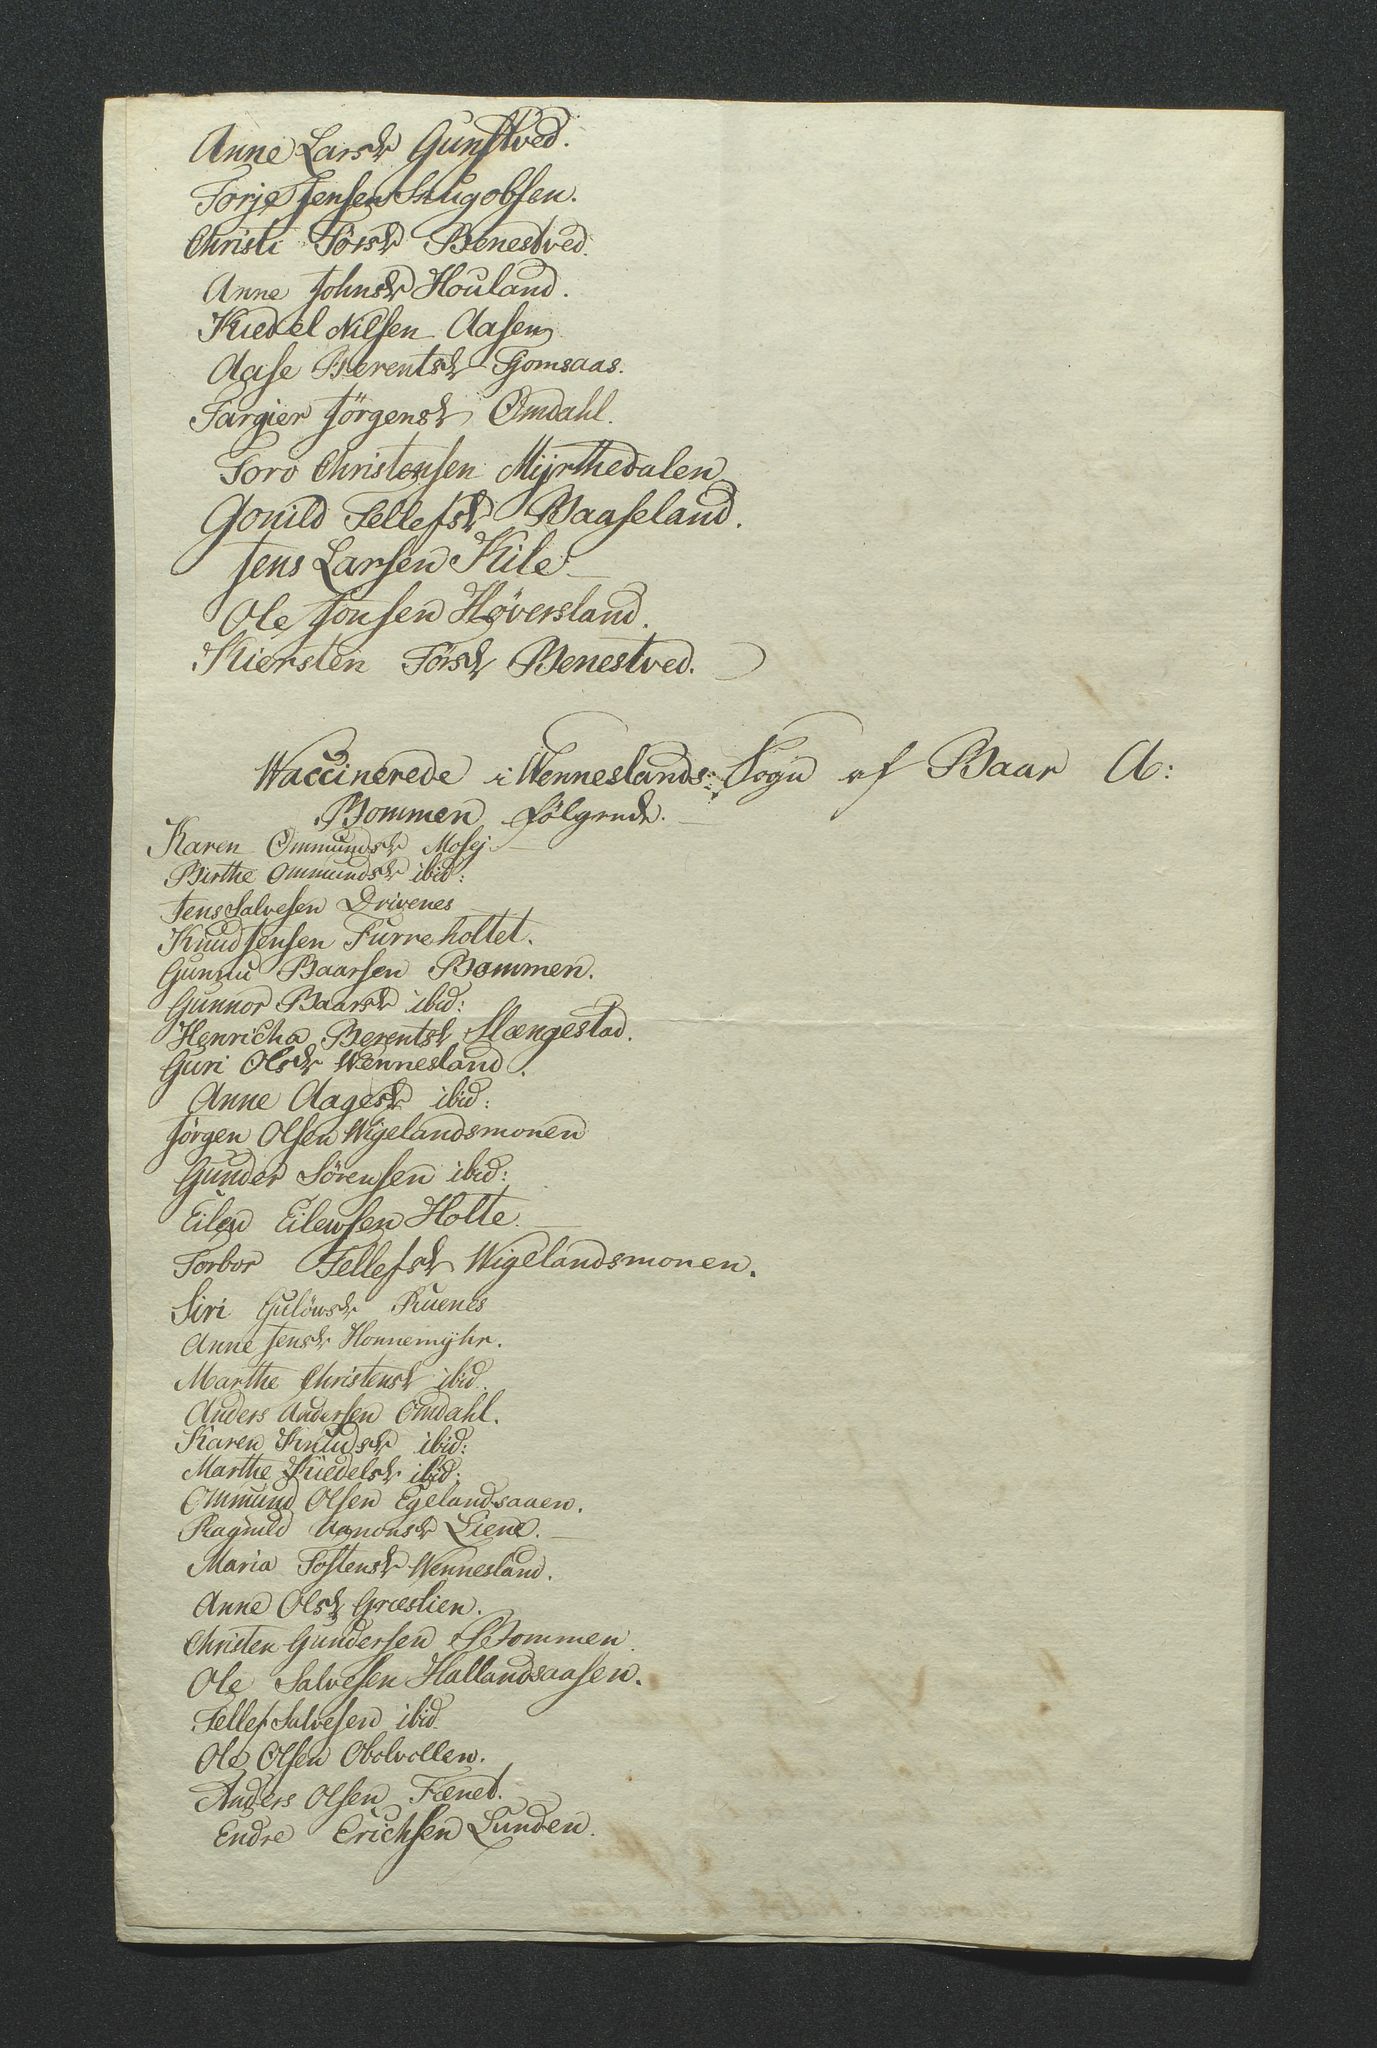 Anne Larsdr Gunstved.
Torje Jensen Saugobsen.
Christi Törsdr Benestved.
Anne Johnsdr Houland.
Kiedel Nilsen Aasen
Aase Berentsdr Fjomsaas.
Targier Jörgensdr Omdahl.
Toro Christensen Myrthedalen
Gonild Tellefsdr Baaseland.
Jens Larsen Kile
Ole Jonsen Høversland.
Kiersten Törsdr Benestved.
Waccinerede i Wenneslands Sogn af Baar A:
Bommen følgende.
Karen Ommundsdr Mosej
Birthe Ommundsdr ibid:
Jens Salvesen Drivenes
Knud Jensen Furreholtet.
Gunnu Baarsen Bommen.
Gunnor Baarsdr ibid:
Henricha Berentsdr Slængestad.
Guri Olsdr Wennesland.
Anne Aagesdr ibid:
Jörgen Olsen Wigelandsmonen
Gunder Sörensen ibid:
Eilev Eilewsen Holte.
Torbor Tellefsdr Wigelandsmonen.
Siri Gulöwsdr Ruenes
Anne Jensdr Honnemyhr.
Marthe Christensdr ibid.
Anders Andersen Omdahl.
Karen Knudsdr ibid:
Marthe Kiedelsdr ibid:
Ommund Olsen Egelandsaaen.
Ragnild Aanonsdr Liene.
Maria Tostensdr Wennesland.
Anne Olsdr Græslien.
Christen Gundersen Bommen.
Ole Salvesen Hallandsaasen.
Tellef Salvesen ibid.
Ole Olsen Obolvollen.
Anders Olsen Fænet.
Endre Erichsen Lunden.